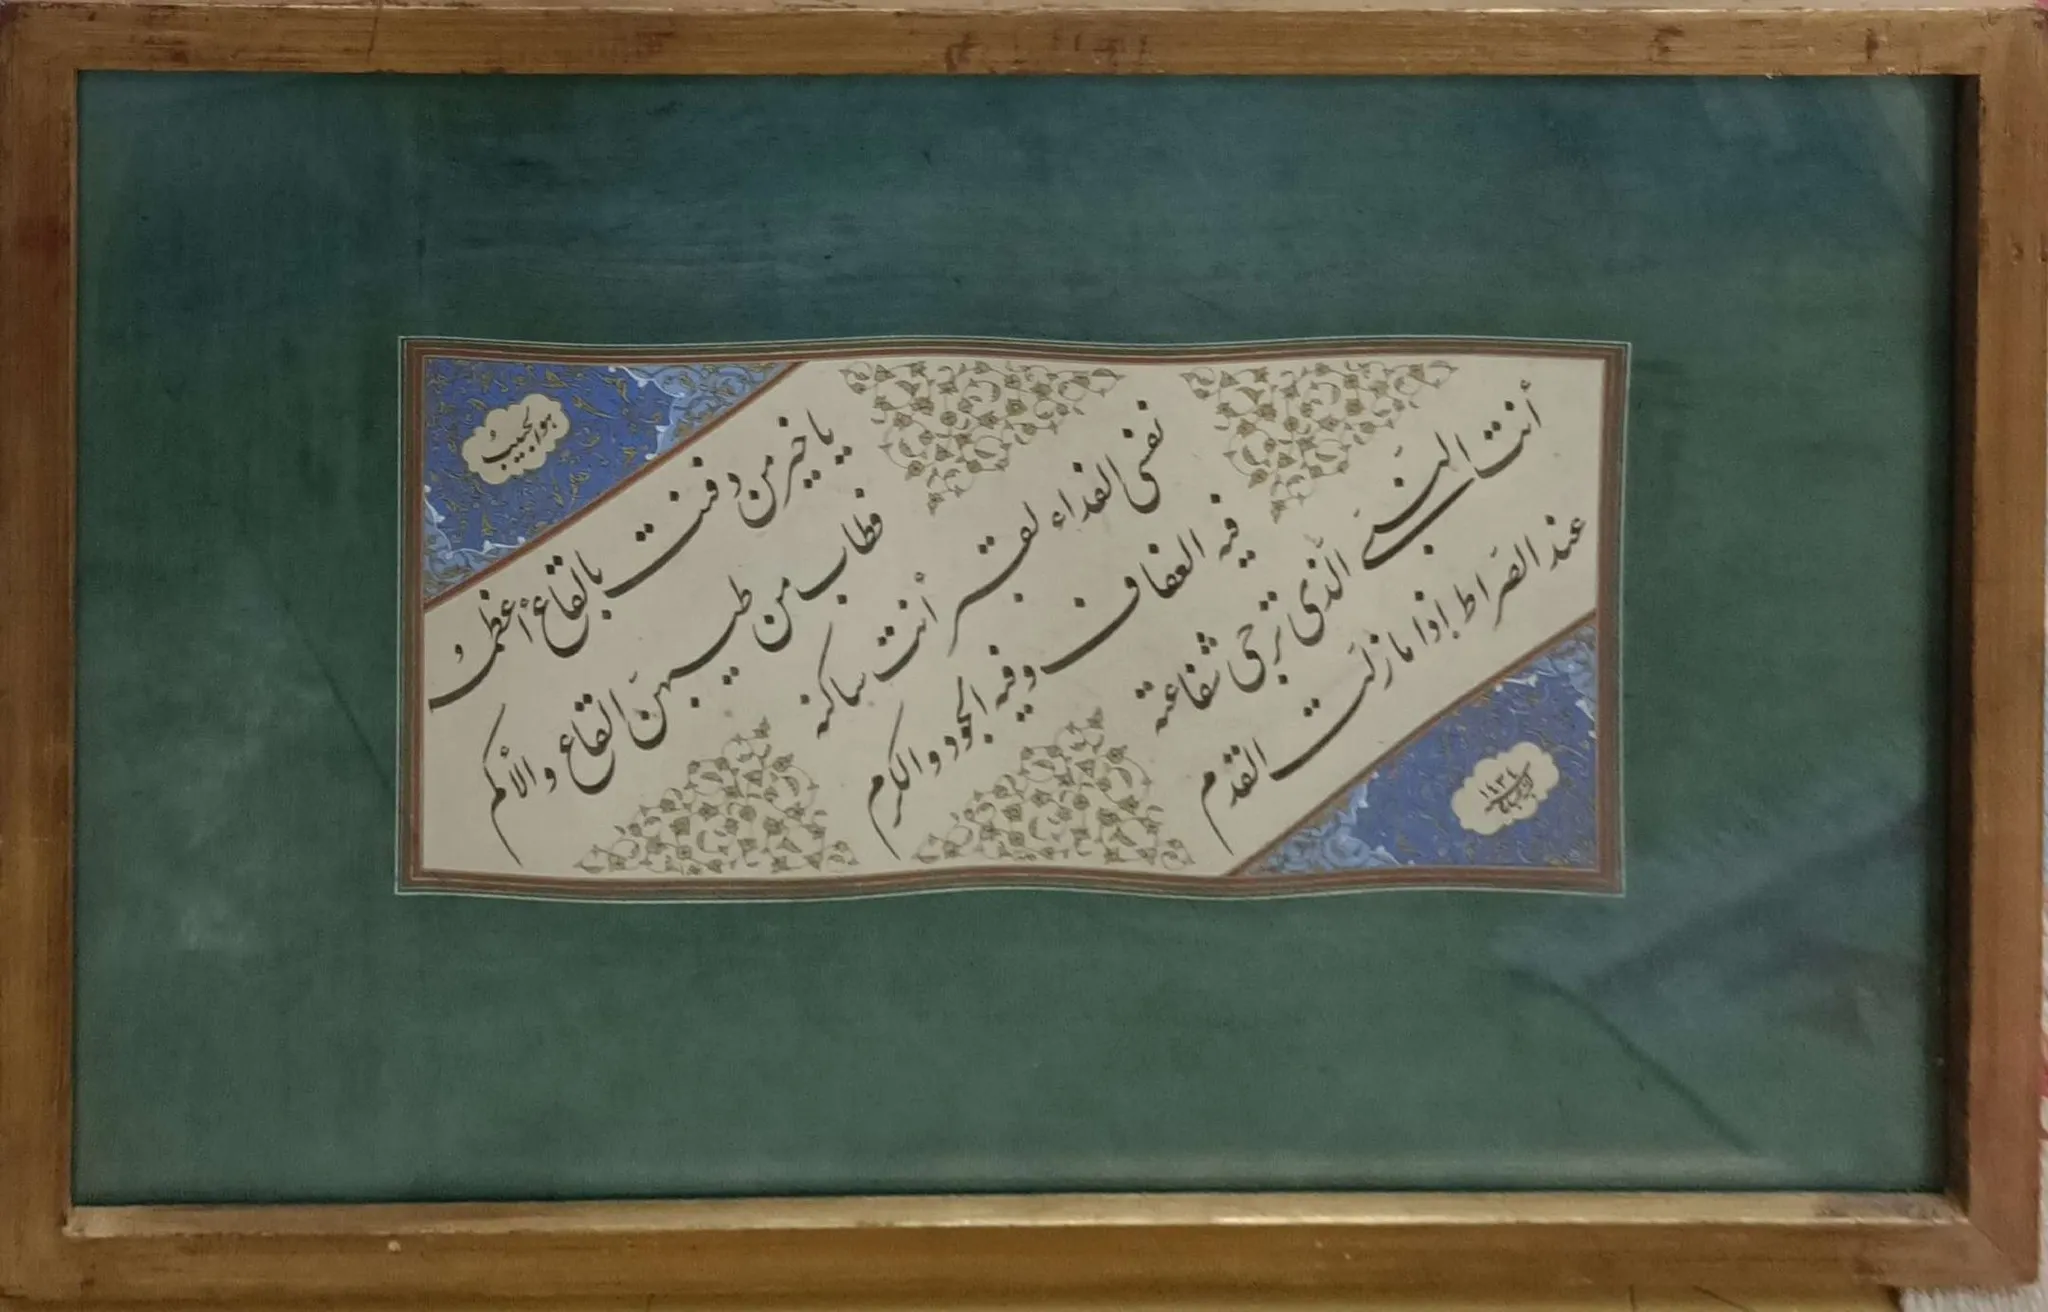 هو الحبيبُ
يا خير من دفنت بالقاع أعظمُه
فطاب من طيبهنّ القاع والأكم
نفسى الفداء لقبر أنت ساكنه
فيه العفاف وفيه الجود والكرم
أنت النبىّ الّذى ترجى شفاعته
عند الصّراط إذا ما زلّت القدم
١٤٣١